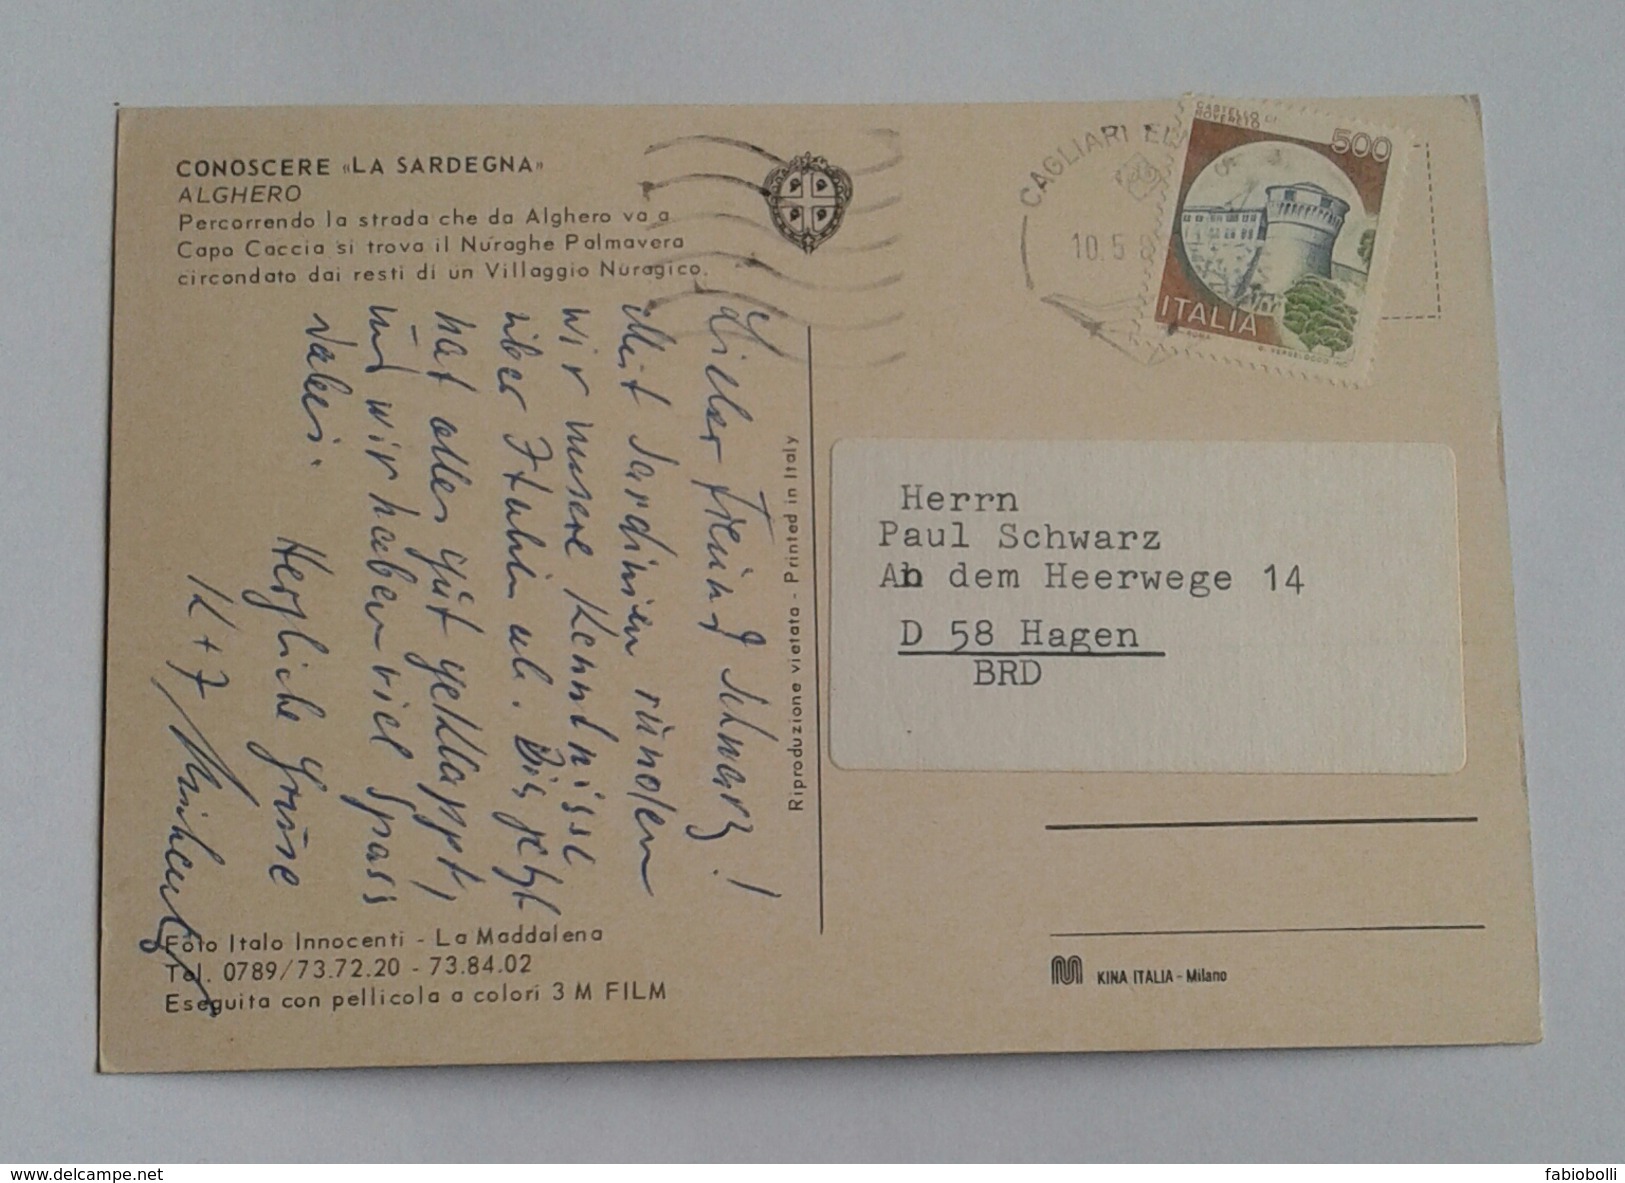 CONOSCERE «LA SARDEGNA»
ALGHERO
Percorrendo la strada che da Alghero va a
Capo Caccia si trova il Nuraghe Palmavera
circondato dai resti di un Villaggio Nuragico.
Lieber Freund Schwarz!
Mit Sardinien runden
wir unsere Kenntnisse
über Italien ab. Bis jetzt
hat alles gut geklappt,
und wir haben viel Spass
dabei.
Herzliche Grüsse
K + F
Foto Italo Innocenti - La Maddalena
Tel. 0789/73.72.20 - 73.84.02
Eseguita con pellicola a colori 3 M FILM
Riproduzione vietata - Printed in Italy
CAGLIARI
10.5
CASTELLO DI
ROVERETO
500
ITALIA
Herrn
Paul Schwarz
An dem Heerwege 14
D 58 Hagen
BRD
KINA ITALIA - Milano
www.delcampe.net
fabiobolli